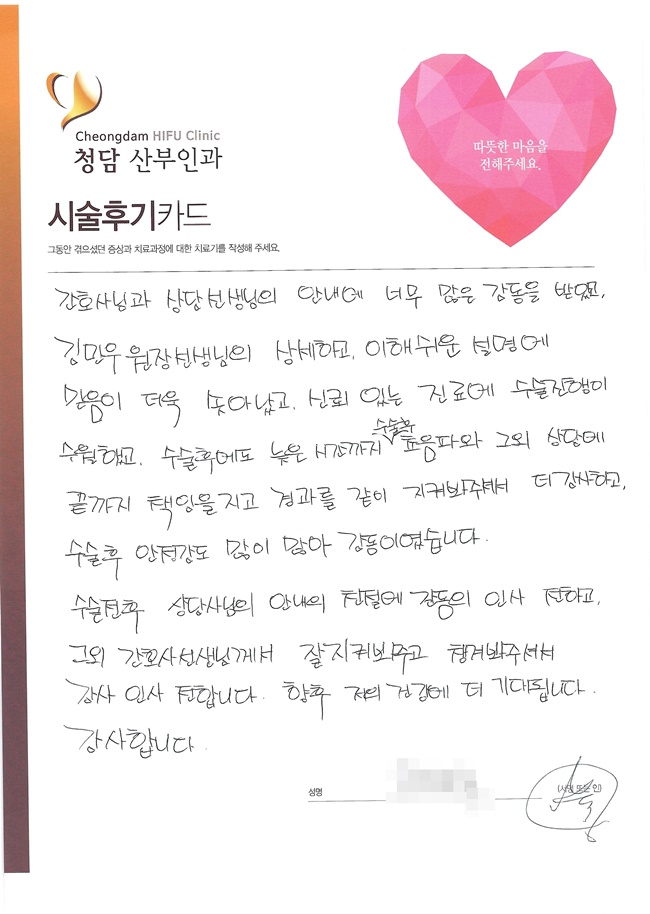 Cheongdam HIFU Clinic
청담 산부인과
따뜻한 마음을
전해주세요.
시술후기카드
그동안 겪으셨던 증상과 치료과정에 대한 치료기를 작성해 주세요.
간호사님과 상담선생님의 안내에 너무 많은 감동을 받았고,
김민우 원장선생님의 상세하고, 이해쉬운 설명에
믿음이 더욱 솟아났고, 신뢰 있는 진료에 수술진행이
수월했고, 수술후에도 늦은 시간까지 수술후 초음파와 그외 상담에
끝까지 책임을지고 경과를 같이 지켜봐주셔서 더 감사하고,
수술후 안정감도 많이 많아 감동이였습니다.
수술전후 상담사님의 안내의 친절에 감동의 인사 전하고,
그외 간호사선생님께서 잘지켜봐주고 챙겨봐주셔서
감사 인사 전합니다. 향후 저의 건강에 더 기대됩니다.
감사합니다.
성명
(서명 또는 인)